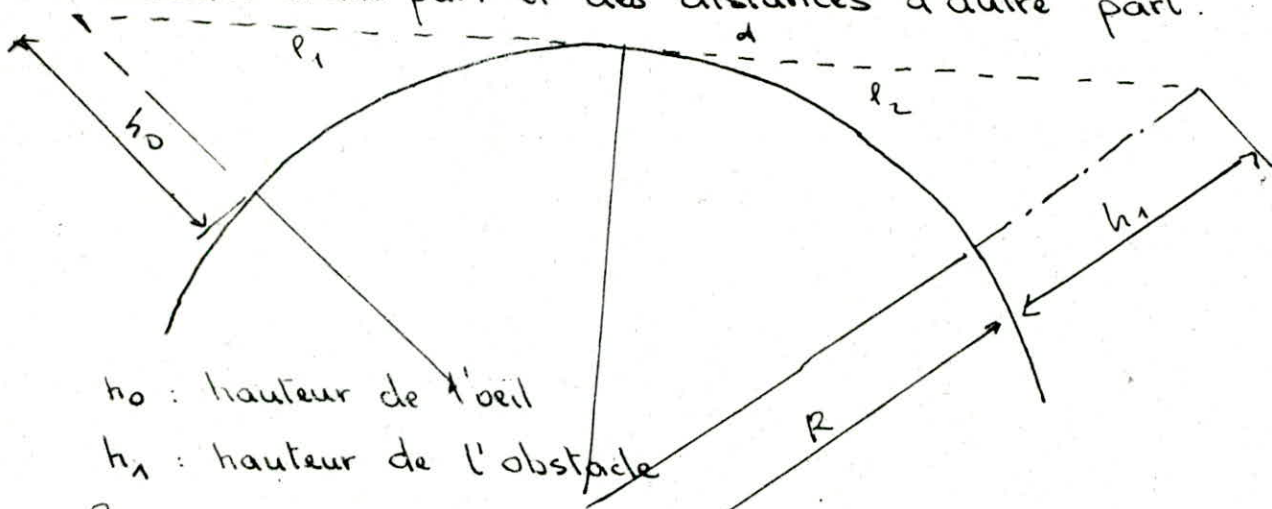 part et des distances d'autre part.
l1
d
l2
h0
h1
R
h0 : hauteur de l'oeil
h1 : hauteur de l'obstacle